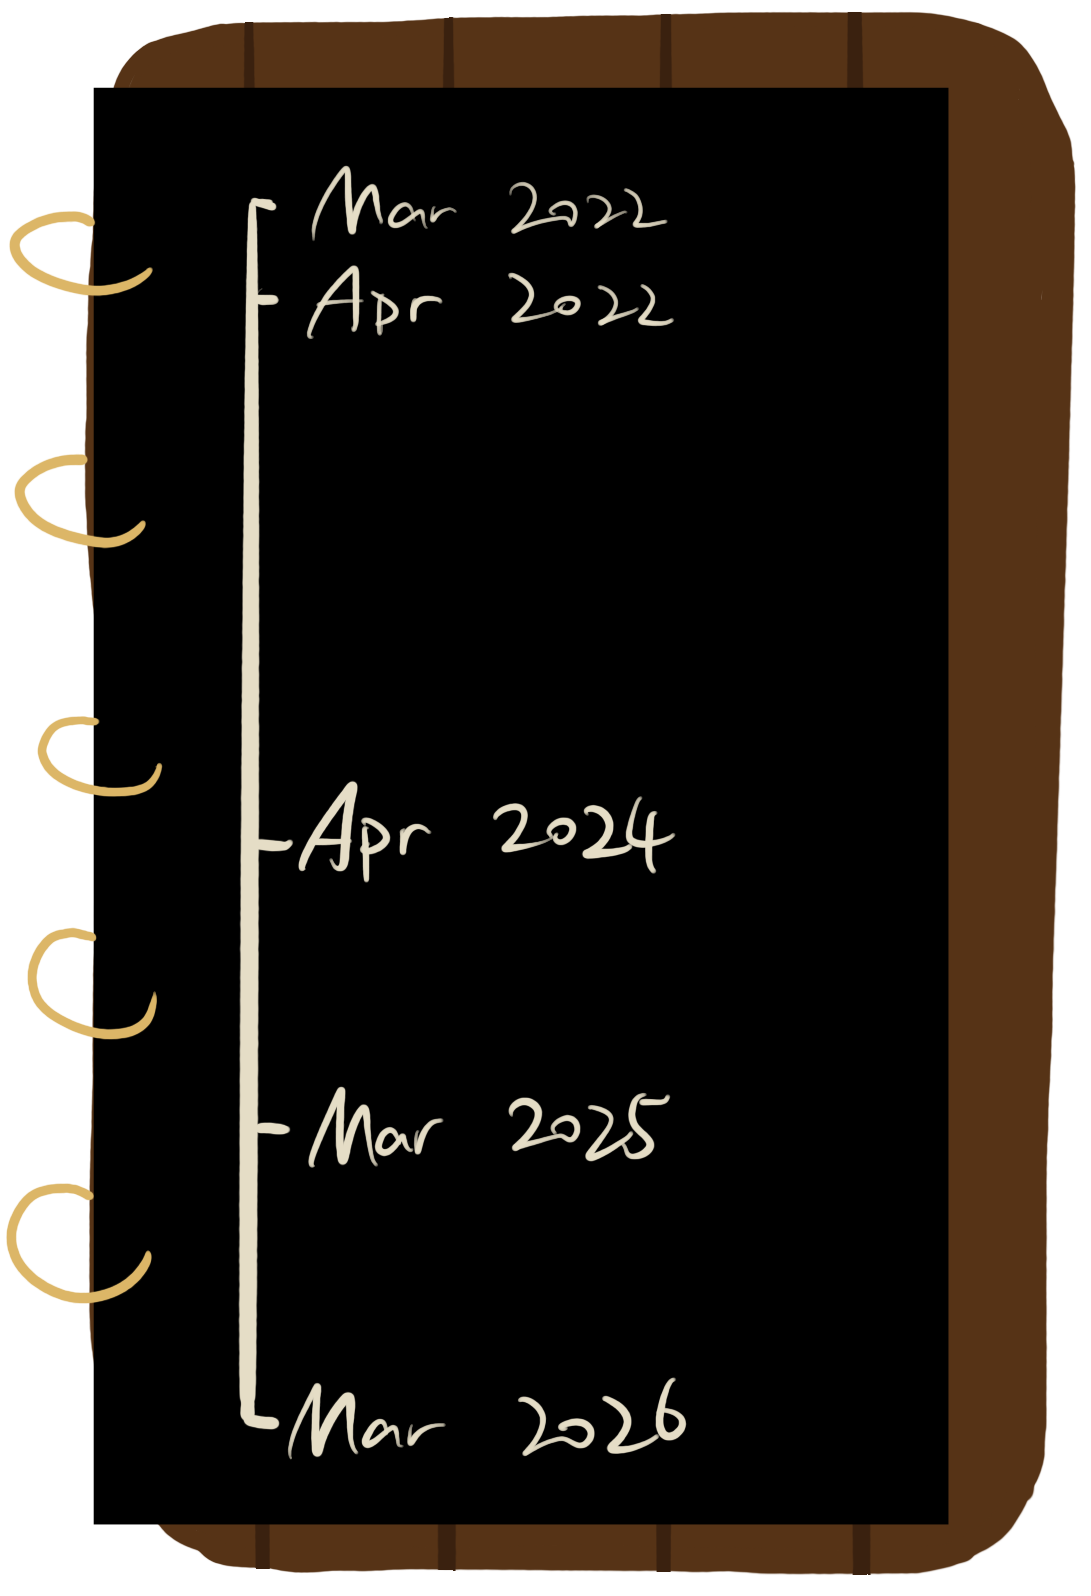 Mar 2022
Apr 2022
Apr 2024
Mar 2025
Mar 2026